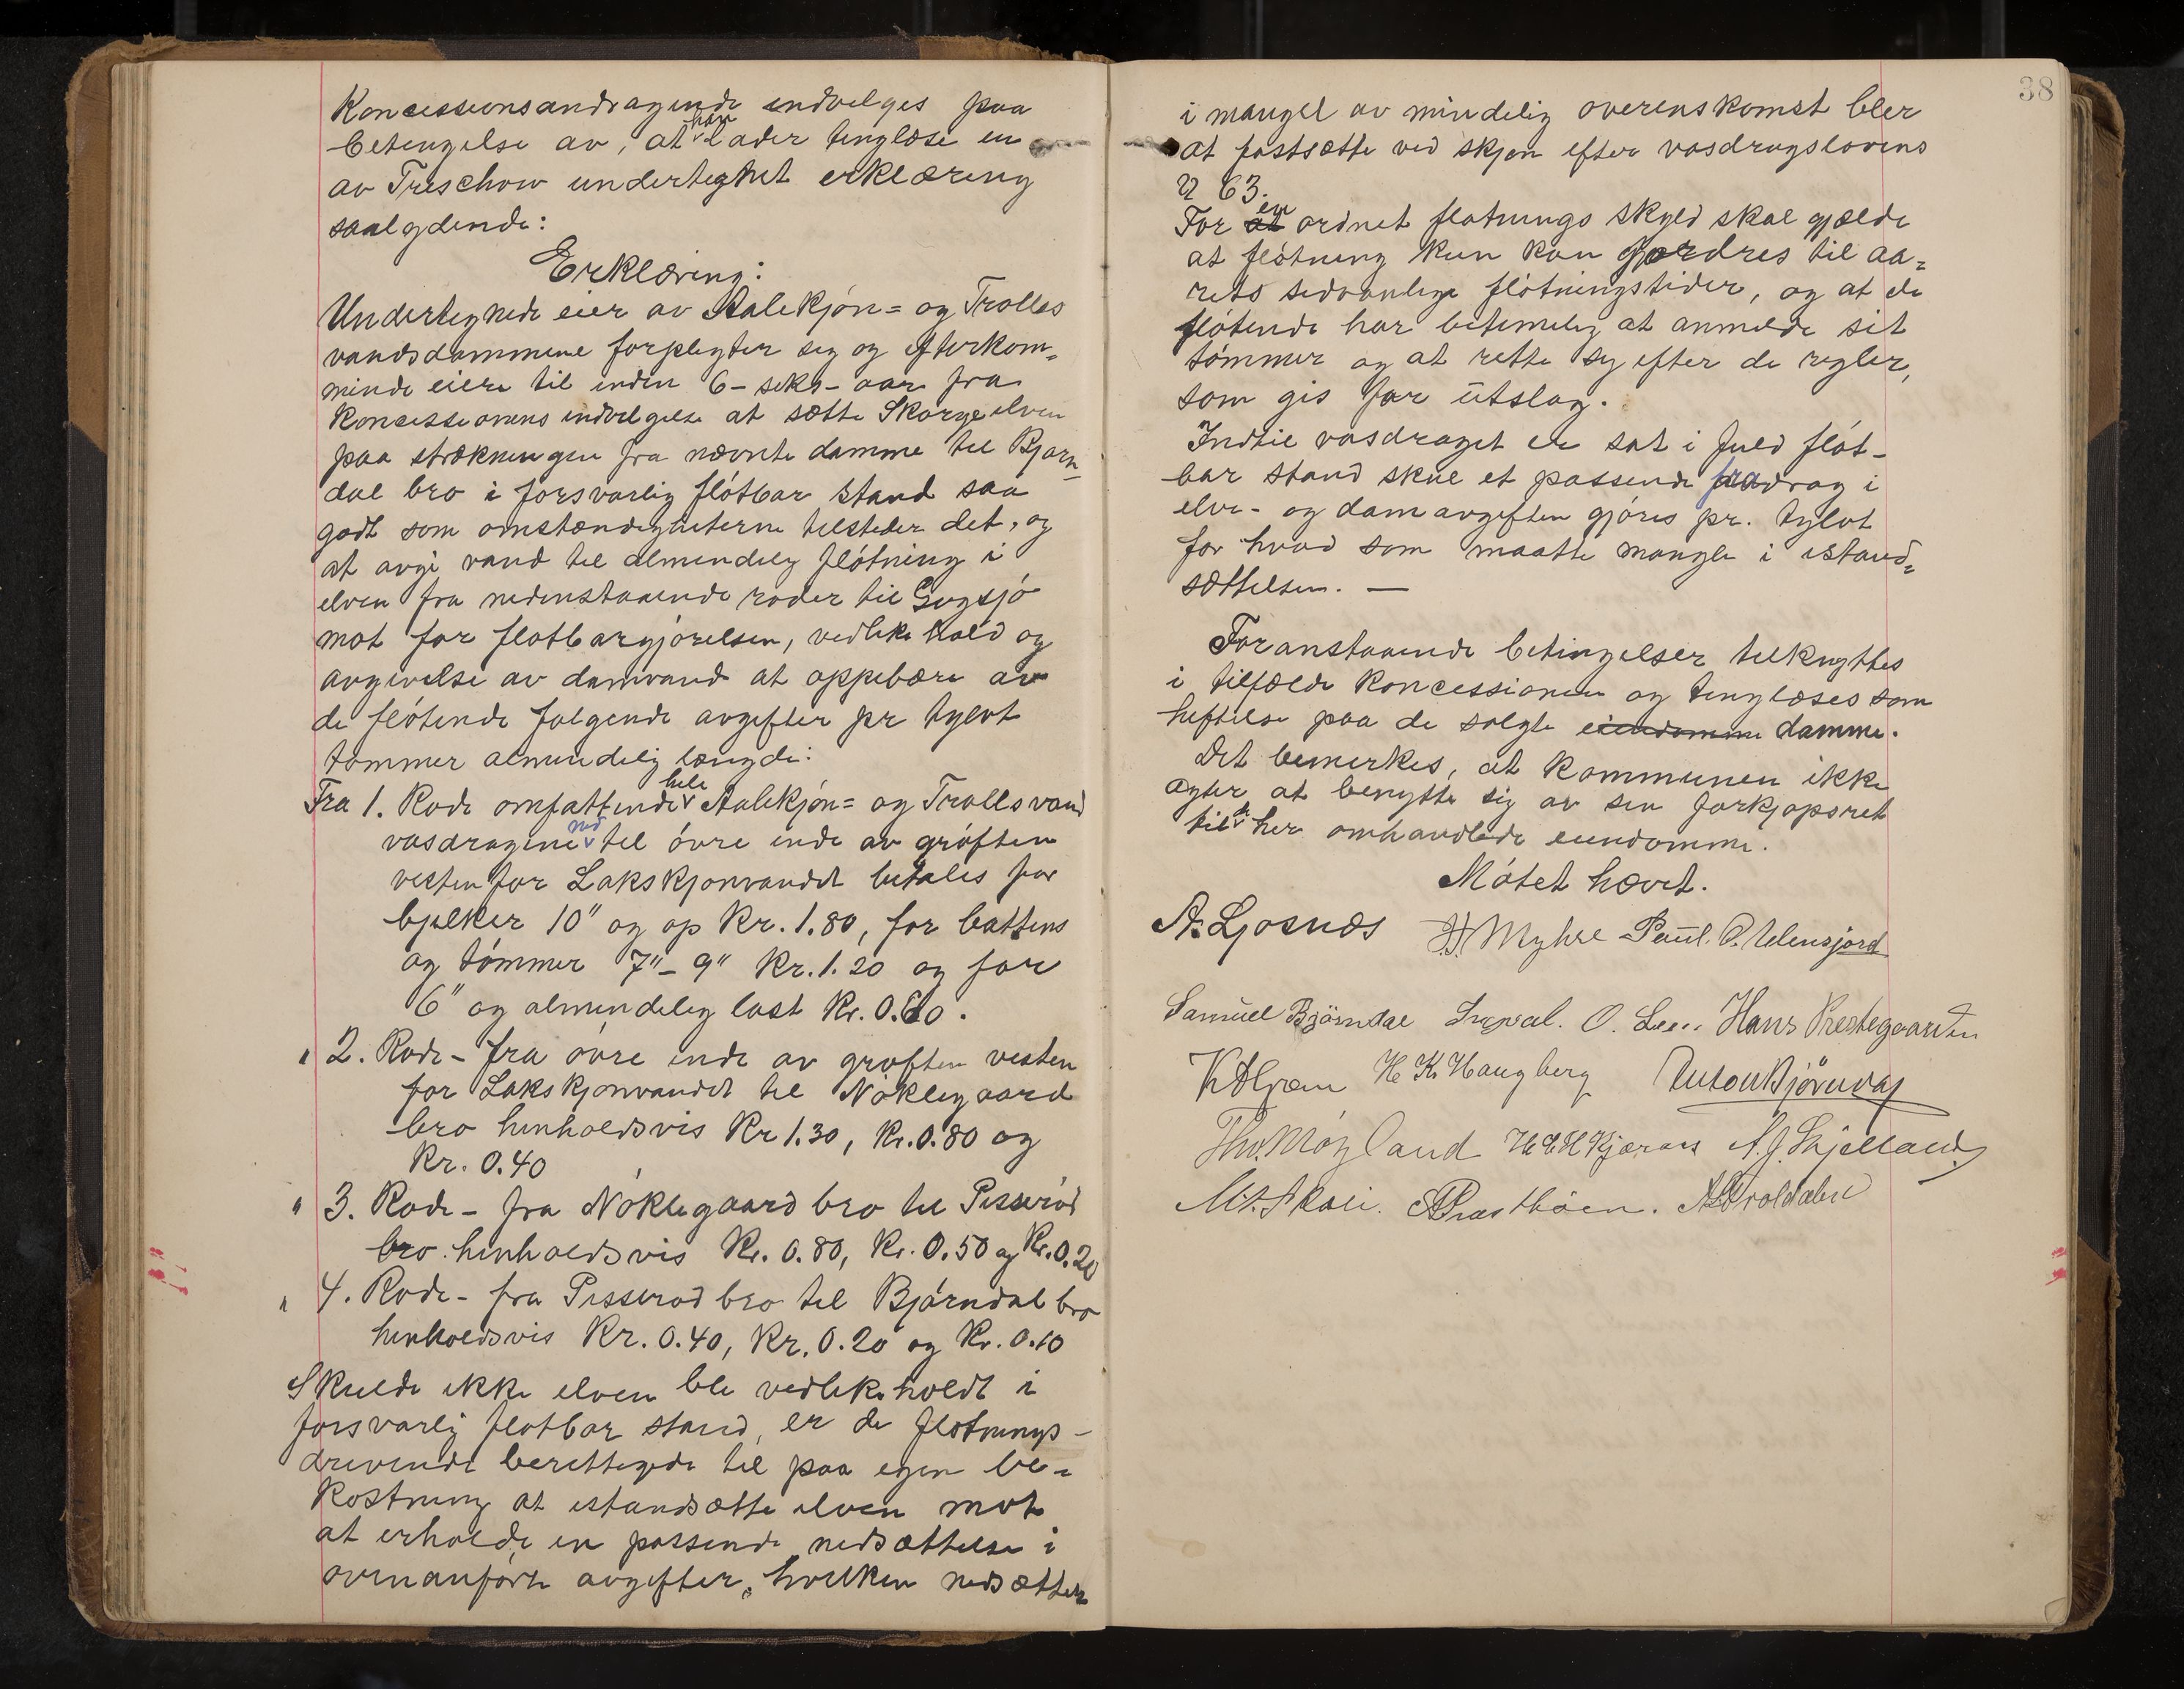 Koncessionsandragende indvilges paa
betingelse av, at han lader tinglæse en
av Treschow undertegnet erklæring
saalydende:
Erklæring:
Undertegnede eier av Aalekjön= og Trolls
vandsdammene forpligter sig og efterkom=
minde eiere til inden 6 - seks - aar fra
koncessionens indvilgelse at sætte Skorge elven
paa strækningen fra nævnte damme til Bjørn-
dal bro i forsvarlig flötbar stand saa
godt som omstændigheterne tilsteder det, og
at avgi vand til almindelig flötning i
elven fra nedenstaaende roder til Gogsjö
mot for flotbargjörelsen, vedlikehold og
avgivelse av damvand at oppebære av
de flötende følgende avgifter pr tylvt
tømmer almindelig længde:
Fra 1. Rode omfattende hele Aalekjön= og Trollsvand
vasdragene ned til övre ende av gröften
vesten for Lakskjonvandet betales for
bjelker 10" og op Kr. 1.80, for battens
og tömmer 7" - 9" Kr. 1.20 og for
6" og almindelig last Kr. 0.60.
" 2. Rode - fra övre ende av grøften vesten
for Lakskjonvandet til Nöklegaard
bro henholdsvis Kr 1.30, Kr. 0.80 og
Kr. 0.40
" 3. Rode - fra Nöklegaard bro til Pisseröd
bro henholdsvis Kr. 0.80, Kr. 0.50 og Kr. 0.20
" 4. Rode - fra Pisserød bro til Björndal bro
henholdsvis Kr. 0.40, Kr. 0.20 og Kr. 0.10
Skulde ikke elven bli vedlikeholdt i
forsvarlig flotbar stand, er de fløtnings-
drivende berettigede til paa egen be-
kostning at istandsætte elven mot
at erholde en passende nedsættelse i
ovenanførte avgifter, hvilken nedsættelse
38
i mangel av mindelig overenskomst blir
at fastsætte ved skjøn efter vasdragslovens
§ 63.
For at en ordnet fløtnings skyld skal gjælde
at flötning kun kan fordres til aa=
rets sedvanlige flötningstider, og at de
flötende har betimelig at anmelde sit
tömmer og at rette sig efter de regler,
som gis for utslag.
Indtil vasdraget er sat i fuld flöt-
bar stand skal et passende fradrag i
elve- og damavgiften gjöres pr. tylvt
for hvad som maatte mangle i istand=
sættelsen. —
Foranstaaende betingelser tilknyttes
i tilfælde koncessionen og tinglæses som
heftelse paa de solgte eiendomme damme.
Det bemerkes, at kommunen ikke
agter at benytte sig av sin forkjøpsret
til de her omhandlede eiendomme.
Mötet hævet.
A. Ljosnæs H Myhre Paul. O. Ulensjord
Samuel Björndal Ingval. O. Lee Hans Prestegaarden
H. K. Haugberg Anton Björndal
Thv. Möyland H E H Kjærans A. J. Skjelland
Mt. Skali. Prestbøen. A. Troldalen